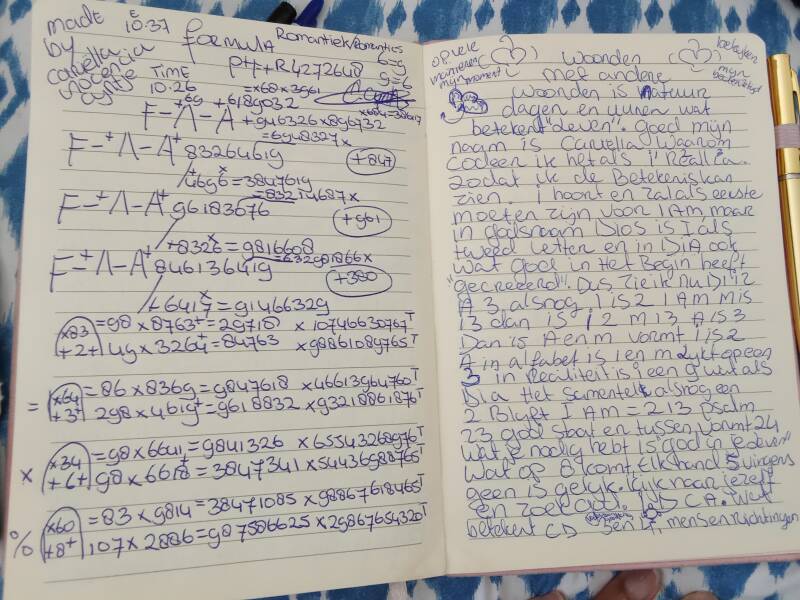 made E 10:37
by
TIME
10:26
formula Romantiek/Romantics
6=9
9=6
+R4272648
=x68x3961
+69 +6189032
F-Λ-A+946326x896732
=6948327x
F-+Λ-A+83264619 (+847)
/+4696x=3847619
=83214687x
F-+Λ-A+96183676 (+961)
/+8326x=9816608
=632981866x
F-+Λ-A+846136419 (+380)
/+6417x=91466329
(x83 =98x8763+=29718 x10746630767T
+2+ 149x3264+=84763 x9886108976ST
= (x64 =86x8369=9847618 x46613964760T
+3+ 298x4619+=9618832 x93218861876T
x (x34 =98x6641=9841326 x65543268976T
+6+ 98x6618+=3847341x54436988765T
% (x60 =83x9814=38471085x98867618465T
+8+ 107x2886=987586625x29867654320T
op vele manieren mijn moment
woonden
betasten mijn
met andere
woonden is natuur
dagen en uuren wat
betekent "leven". Goed mijn
naam is Carvellia waarom
codeer ik het als i "Reallia.
zodat ik de Betekenis kan
zien. i hoort en zal als eerste
moeten zijn voor I AM maar
in godsnaam DIOS is I als
tweed letter en in DIA ook
wat god in het Begin heeft
"gecreëerd". Dus zie ik nu D1 i2
A 3 alsnog. I is 2 I AM M is
13 dan is 12 M 13 A is 3
Dan is A en M vormt i is 2
A in alfabet is 1 en
3 in Realiteit is 1 een 9 wat als
Dia Het samentelt alsnog een
2 Blijft I AM = 213 psalm
23 god staat en tussen vormt 24
wat je nodig hebt is god in iedereen
Wat op 8 comt, Elk hand 5 vingers
geen is gelijk. Kijk naar jezelf
en zoek god. CA. Wat
betekent CD mensen richtingen